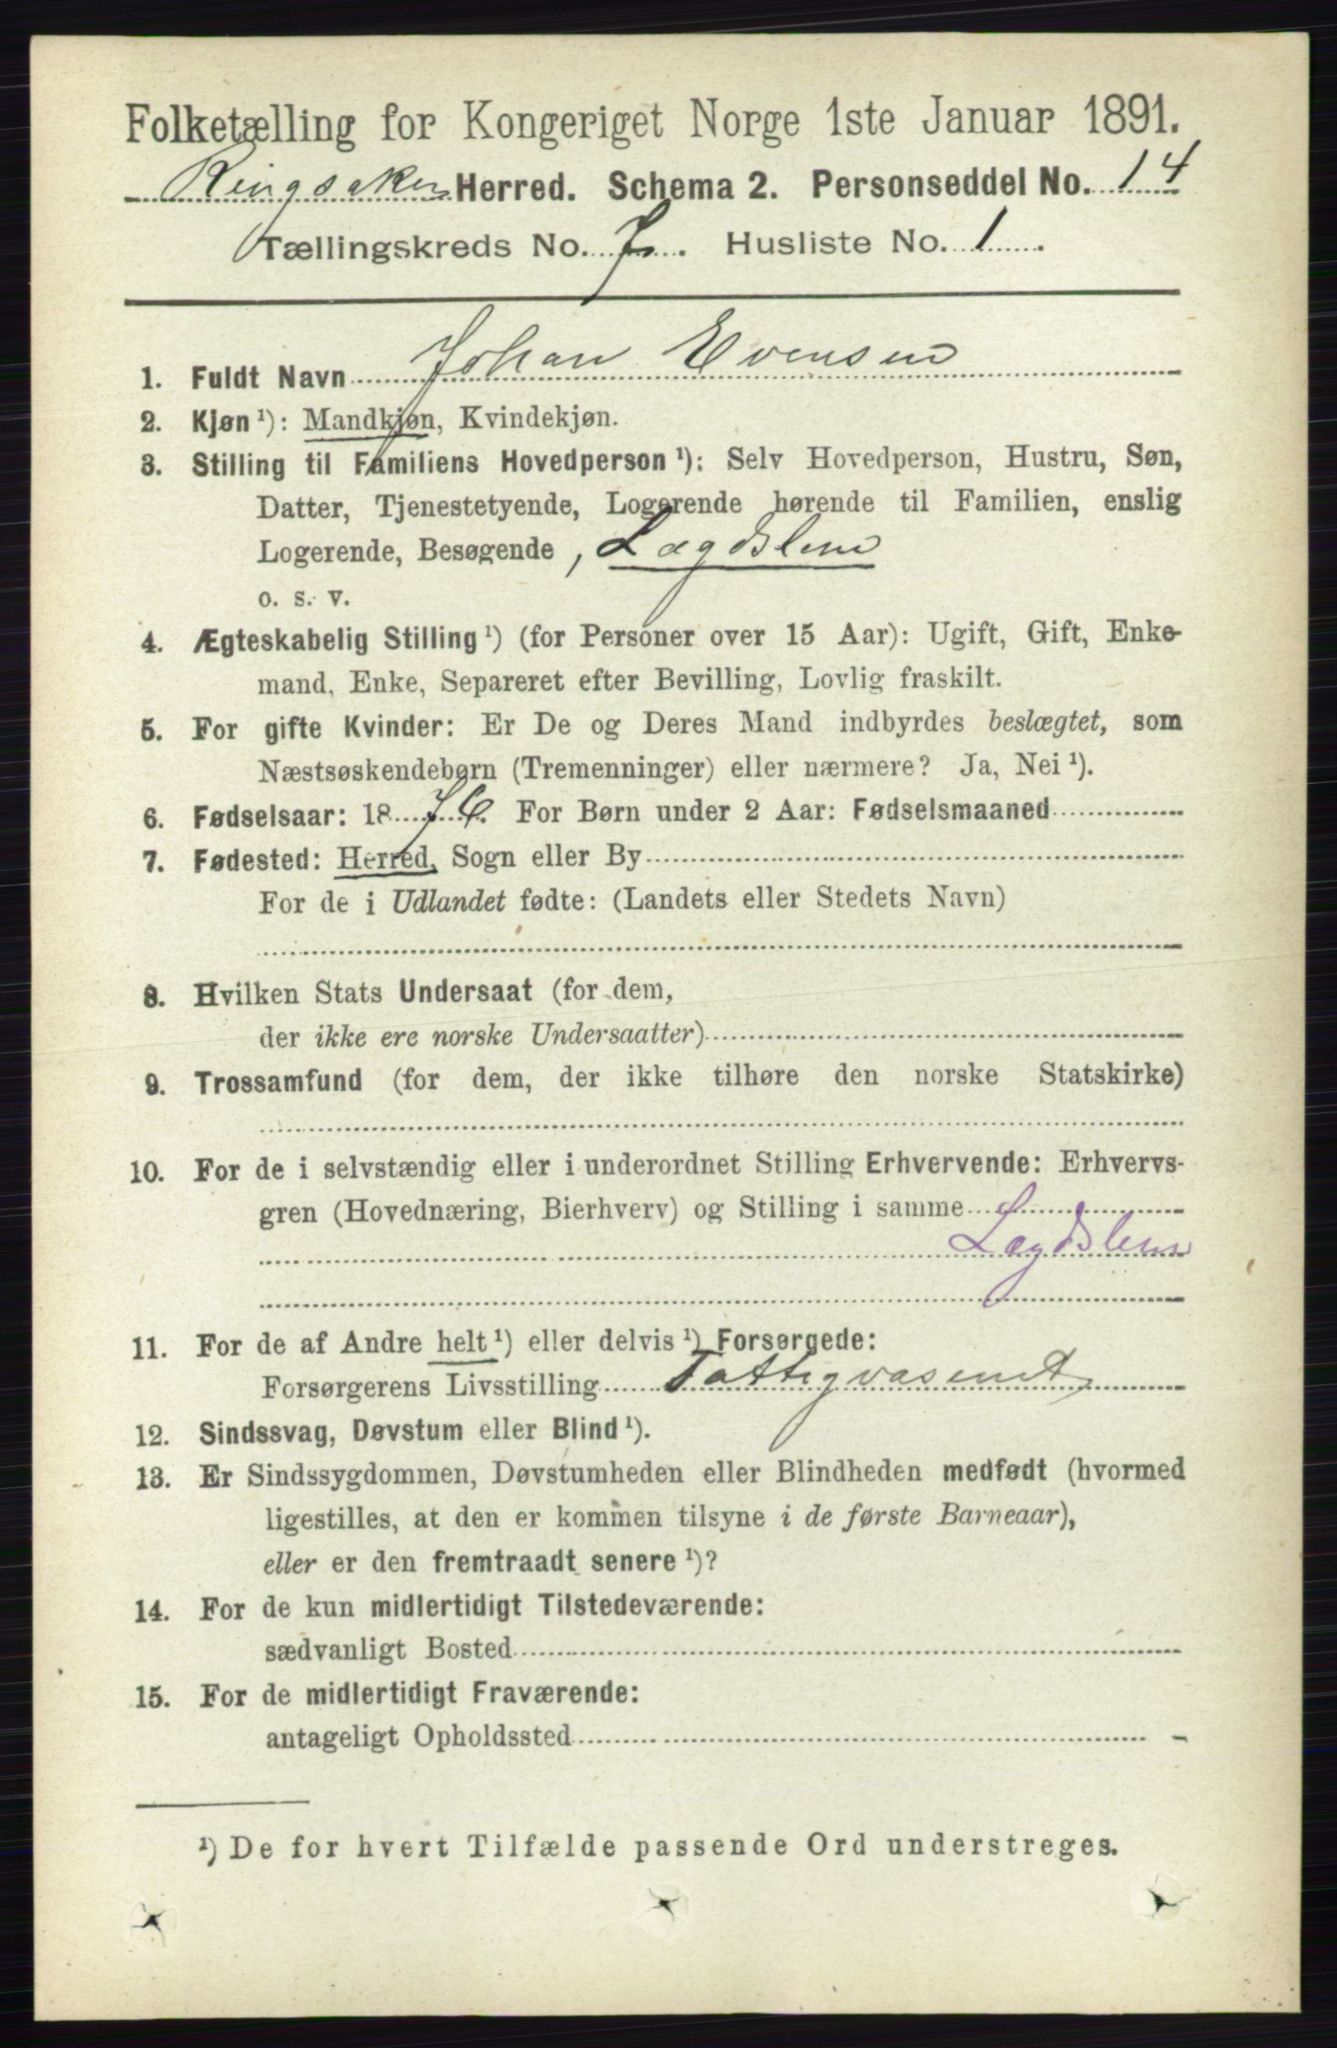 Folketælling for Kongeriget Norge 1ste Januar 1891.
Ringsaker Herred. Schema 2. Personseddel No. 14
Tællingskreds No. 7. Husliste No. 1.
1. Fuldt Navn Johan Evensen
2. Kjøn ¹): Mandkjøn, Kvindekjøn.
3. Stilling til Familiens Hovedperson ¹): Selv Hovedperson, Hustru, Søn,
Datter, Tjenestetyende, Logerende hørende til Familien, enslig
Logerende, Besøgende, Lægdslem
o. s. v.
4. Ægteskabelig Stilling ¹) (for Personer over 15 Aar): Ugift, Gift, Enke-
mand, Enke, Separeret efter Bevilling, Lovlig fraskilt.
5. For gifte Kvinder: Er De og Deres Mand indbyrdes beslægtet, som
Næstsøskendebørn (Tremenninger) eller nærmere? Ja, Nei ¹).
6. Fødselsaar: 1876. For Børn under 2 Aar: Fødselsmaaned
7. Fødested: Herred, Sogn eller By
For de i Udlandet fødte: (Landets eller Stedets Navn)
8. Hvilken Stats Undersaat (for dem,
der ikke ere norske Undersaatter)
9. Trossamfund (for dem, der ikke tilhøre den norske Statskirke)
10. For de i selvstændig eller i underordnet Stilling Erhvervende: Erhvervs-
gren (Hovednæring, Bierhverv) og Stilling i samme
Lægdslem
11. For de af Andre helt ¹) eller delvis ¹) Forsørgede:
Forsørgerens Livsstilling Fattigvæsenet
12. Sindssvag, Døvstum eller Blind ¹).
13. Er Sindssygdommen, Døvstumheden eller Blindheden medfødt (hvormed
ligestilles, at den er kommen tilsyne i de første Barneaar),
eller er den fremtraadt senere ¹)?
14. For de kun midlertidigt Tilstedeværende:
sædvanligt Bosted
15. For de midlertidigt Fraværende:
antageligt Opholdssted
¹) De for hvert Tilfælde passende Ord understreges.